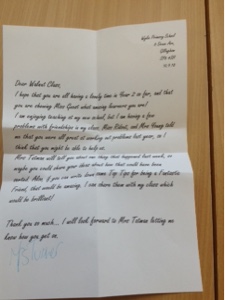 Wylie Primary School
Gillingham
Dear Walnut Class,
I hope that you are all having a lovely time in Year 2 so far, and that
you are showing Miss Guest what amazing learners you are!
I am enjoying teaching at my new school, but I am having a few
problems with friendships in my class. Miss and Mrs Young told
me that you were all great at sorting out problems last year, so I
think that you might be able to help us.
Mrs Tatman will tell you about one thing that happened last week, so
maybe you could share your ideas about how that could have been
sorted. Also, if you can write down some Top Tips for being a Fantastic
Friend, that would be amazing. I can share them with my class which
would be brilliant!
Thank you so much... I will look forward to Mrs Tatman letting me
know how you get on.